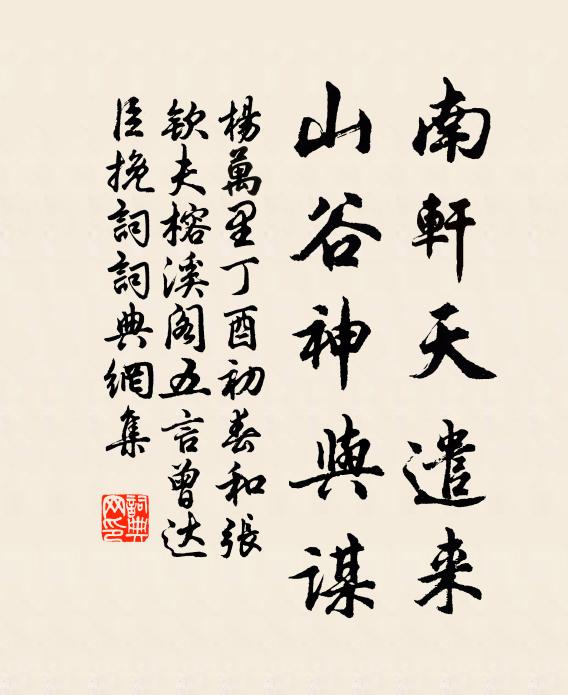 南軒天遣来
山谷神與謀
楊萬里丁酉初春和張
欽夫榕溪閣五言曾达
臣挽詞詞典網集
詞典网印